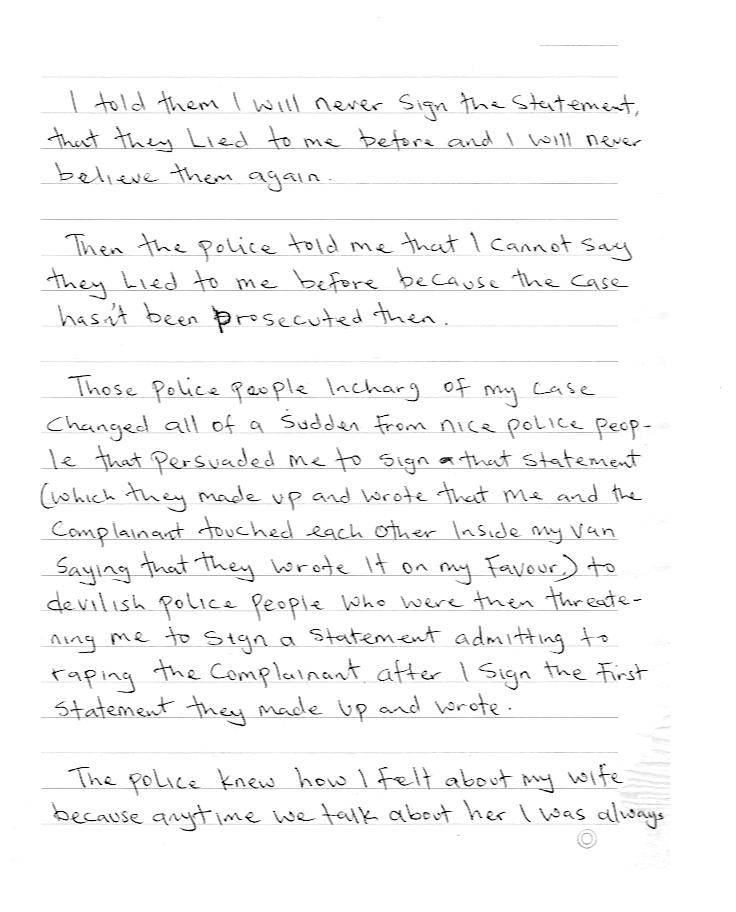 I told them I will never Sign the Statement,
that they Lied to me before and I will never
believe them again.
Then the police told me that I cannot say
they Lied to me before because the case
hasn't been prosecuted then.
Those police people Incharg of my case
Changed all of a Sudden from nice police peop-
le that persuaded me to sign that statement
(which they made up and wrote that me and the
Complainant touched each other Inside my van
Saying that they wrote It on my Favour,) to
devilish police people who were then threate-
ning me to Sign a Statement admitting to
raping the Complainant after I Sign the First
Statement they made Up and wrote.
The police knew how I Felt about my wife
because anytime we talk about her I was always